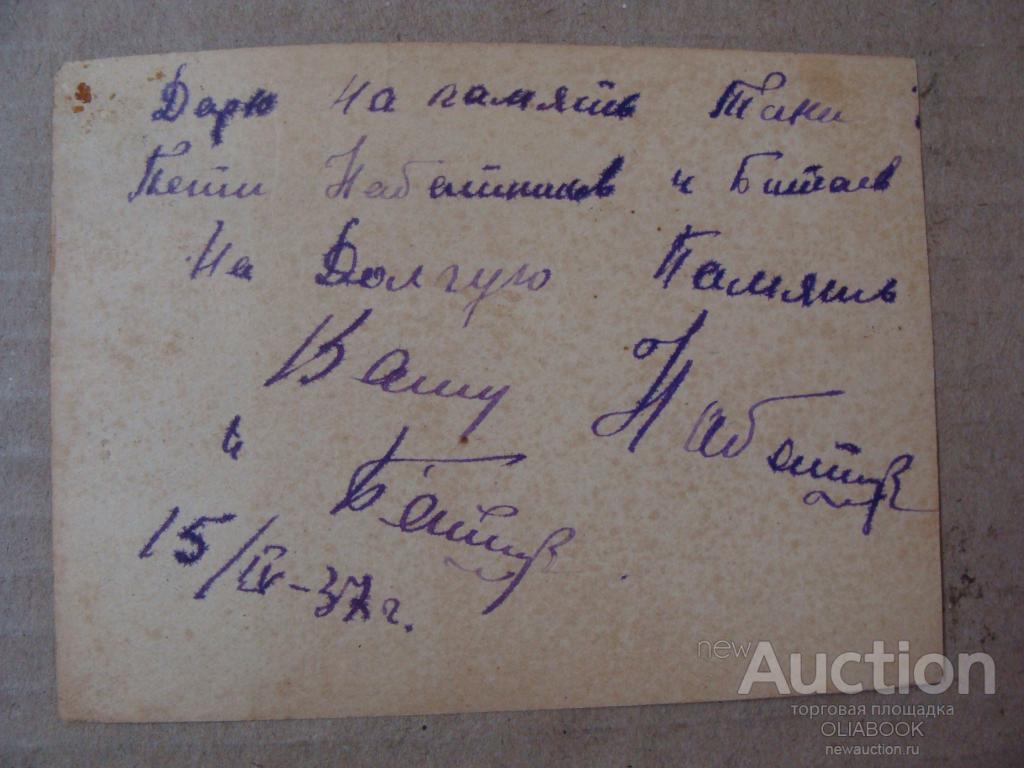 Дарю На память Тани
Пети Набатников и Битаев
На Долгую Память
Вашу
и
15/IV-37г.
newAuction
торговая площадка
OLIABOOK
newauction.ru